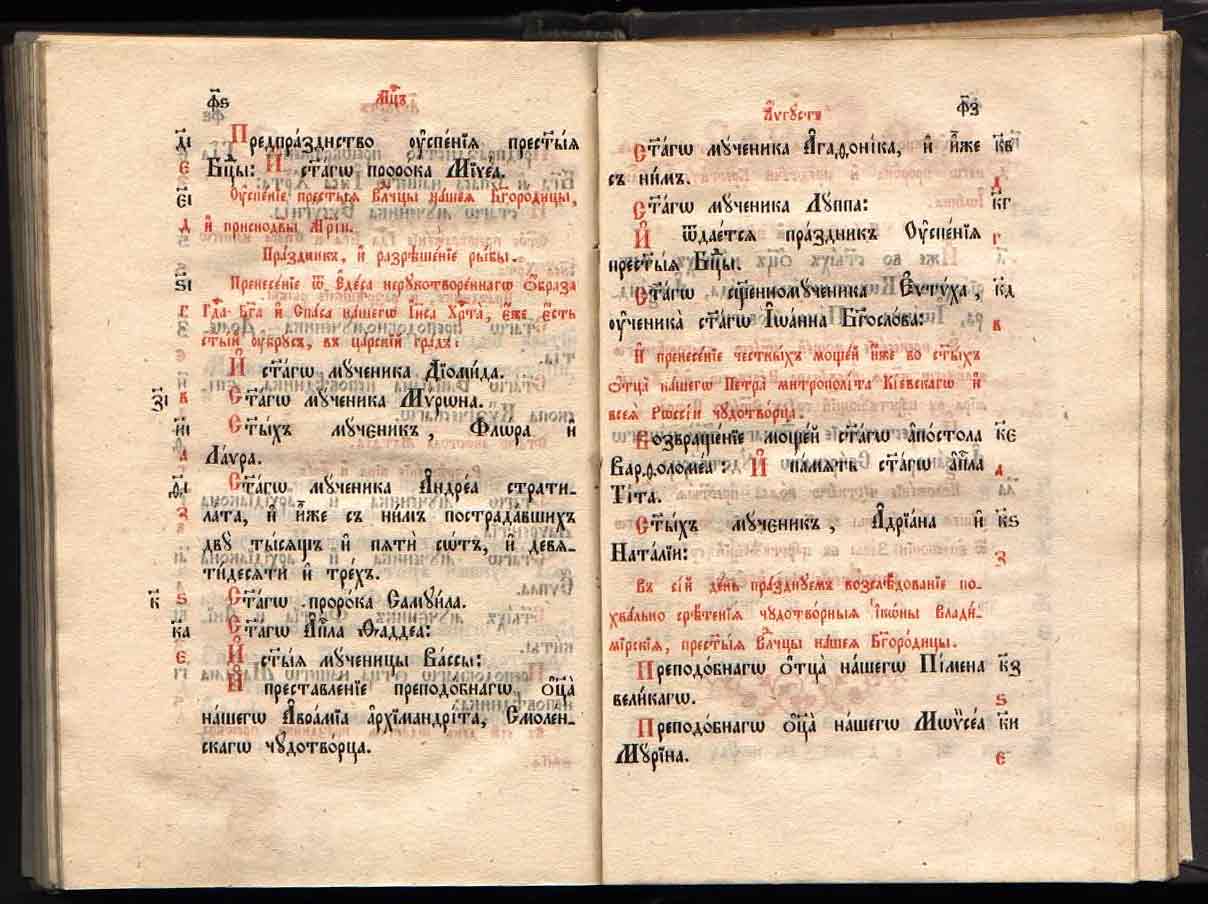 фѕ҃ мц҃ъ
дı҃ Предпра́зднство оу҆спе́нїѧ прест҃ы́ѧ
є Бцⷣы: И҆ ст҃а́гѡ проро́ка Мїхе́а.
єı҃ Оу҆спе́нїе прест҃ы́ѧ влⷣчцы на́шеѧ Бг҃оро́дицы,
д и҆ приснодв҃ы мр҃і́и.
Пра́здникъ, и҆ разрѣше́нїе ры́бы.
ѕı҃ Пренесе́нїе ѿ є҆де́са нерукотворе́ннагѡ ѻ҆́браза
г гдⷭ҇а бг҃а и҆ сп҃са на́шегѡ і҆и҃са хрⷭ҇та̀, є҆́же є҆́сть
ст҃ы́й оу҆бру́съ, въ ца́рскїй гра́дъ:
И҆ ст҃а́гѡ му́ченика Дїоми́да.
зı҃ в Ст҃а́гѡ му́ченика Му́рѡна.
иı҃ Ст҃ы́хъ му́ченикъ, Фло́ра и҆
а Ла́ѵра.
ѳı҃ Ст҃а́гѡ му́ченика А҆ндре́а страти-
з ла́та, и҆ и҆́же съ ни́мъ пострада́вшихъ
дву̀ ты́сѧщъ и҆ пѧтѝ сѡ́тъ, и҆ девѧ-
ти́десѧти и҆ тре́хъ.
к҃ ѕ Ст҃а́гѡ проро́ка Саму́ила.
ка҃ Ст҃а́гѡ а҆пⷭ҇ла Ѳадде́а:
є И҆ ст҃ы́ѧ му́ченицы Ва́ссы:
И҆ преставле́нїе преподо́бнагѡ, ѻ҆ц҃а̀
на́шегѡ А҆враа́мїа а҆рхїмандрі́та, Смоле́н-
скагѡ чꙋдотво́рца.
А҆́ѵгꙋстъ фз҃
Ст҃а́гѡ му́ченика А҆гаѳоні́ка, и҆ и҆́же кв҃
съ ни́мъ. д
Ст҃а́гѡ му́ченика Лꙋ́ппа: кг҃
И҆ ѿдае́тсѧ пра́здникъ Оу҆спе́нїѧ г
прест҃ы́ѧ Бцⷣы.
Ст҃а́гѡ сщ҃енному́ченика Є҆ѵтꙋ́ха, кд҃
оу҆ченика̀ ст҃а́гѡ І҆ѡа́нна Бг҃осло́ва: в
И҆ пренесе́нїе честны́хъ моще́й и҆́же во ст҃ы́хъ
ѻ҆тца̀ на́шегѡ Петра̀ митрополі́та Кі́евскагѡ и҆
всеѧ̀ Рѡссі́и чꙋдотво́рца.
Возвраще́нїе моще́й ст҃а́гѡ а҆по́стола кє҃
Варѳоломе́а: И҆ па́мѧть ст҃а́гѡ а҆пⷭ҇ла а
Ті́та.
Ст҃ы́хъ му́ченикъ, А҆дрїа́на и҆ кѕ҃
Ната́лїи: з
Въ сі́й де́нь пра́зднуемъ возслѣ́дованїе по-
хва́льно срѣ́тенїѧ чꙋдотво́рныѧ і҆ко́ны Влади́-
мїрскїѧ, прест҃ы́ѧ влⷣчцы на́шеѧ Бг҃оро́дицы.
Преподо́бнагѡ ѻ҆тца̀ на́шегѡ Пі́мена кз҃
вели́кагѡ. ѕ
Преподо́бнагѡ ѻ҆ц҃а̀ на́шегѡ Мѡѷсе́а ки҃
Мꙋ́рїна. є